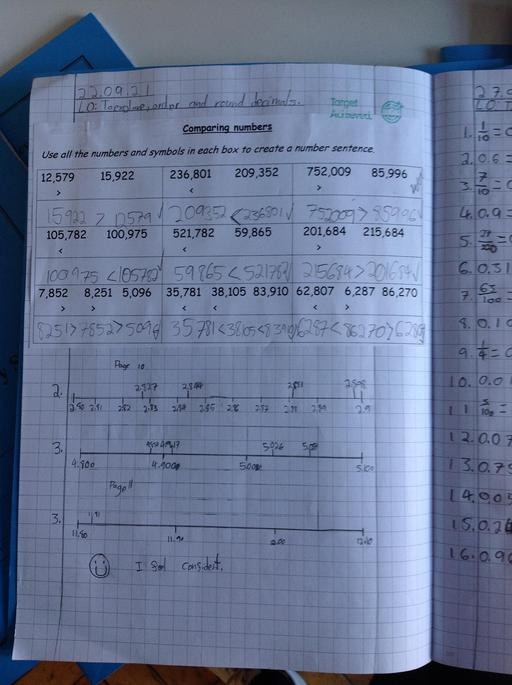 22.09.21
LO: To explore, order and round decimals.
Target Achieved
Comparing numbers
Use all the numbers and symbols in each box to create a number sentence.
12,579 15,922 236,801 209,352 752,009 85,996
> < >
15922 > 12579 209352 < 236801 752009 > 85996
105,782 100,975 521,782 59,865 201,684 215,684
< < >
100975 < 105782 59865 < 521782 215684 > 201684
7,852 8,251 5,096 35,781 38,105 83,910 62,807 6,287 86,270
> > < < < >
8251 > 7852 > 5096 35781 < 38105 < 83910 6287 < 86270 > 62807
Page 10
2.
2.80 2.81 2.82 2.83 2.84 2.85 2.86 2.87 2.88 2.89 2.9
3.
4.800 4.9000 5.000 5.100
Page 11
3.
11.80 11.90 12.00 12.10
I feel confident.
27.0
LO T
1. 1/10 = 0
2. 0.6 =
3. 7/10 = 0
4. 0.9 =
5.
6. 0.31
7. 63/100 =
8. 0.10
9. 1/4 = 0
10. 0.0
11. 5/100 =
12. 0.07
13. 0.75
14.
15. 0.2
16. 0.90